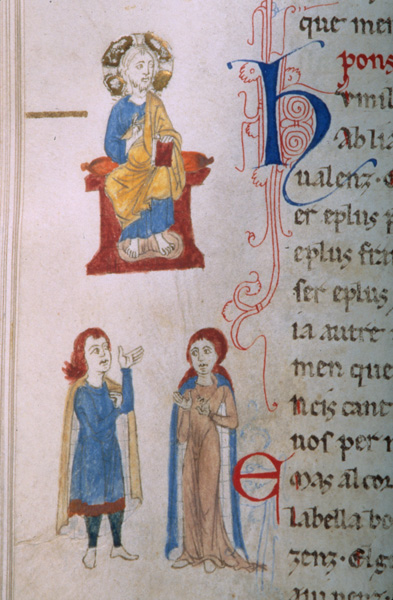 que men
pons
H
rmil
Ab lia
ualenz · E
er eplus p
eplus fra
ser eplus
ia autre
men que
Neis cant
nos per m
Emas al cor
la bella bo
zenz · Eig